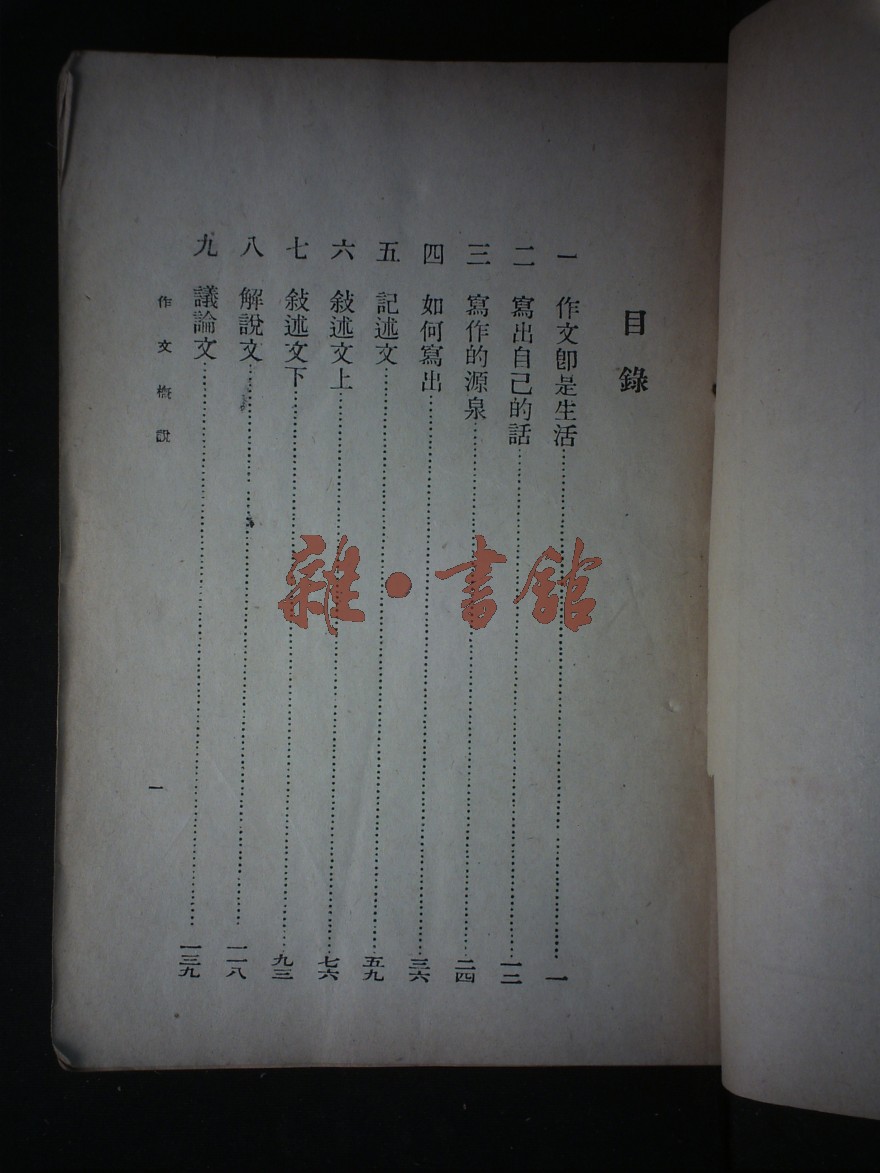 目錄
一 作文卽是生活……一
二 寫出自己的話……一二
三 寫作的源泉……二四
四 如何寫出……三六
五 記述文……五九
六 敍述文上……七六
七 敍述文下……九三
八 解說文……一一八
九 議論文……一三九
作文概說
一
雜·書館